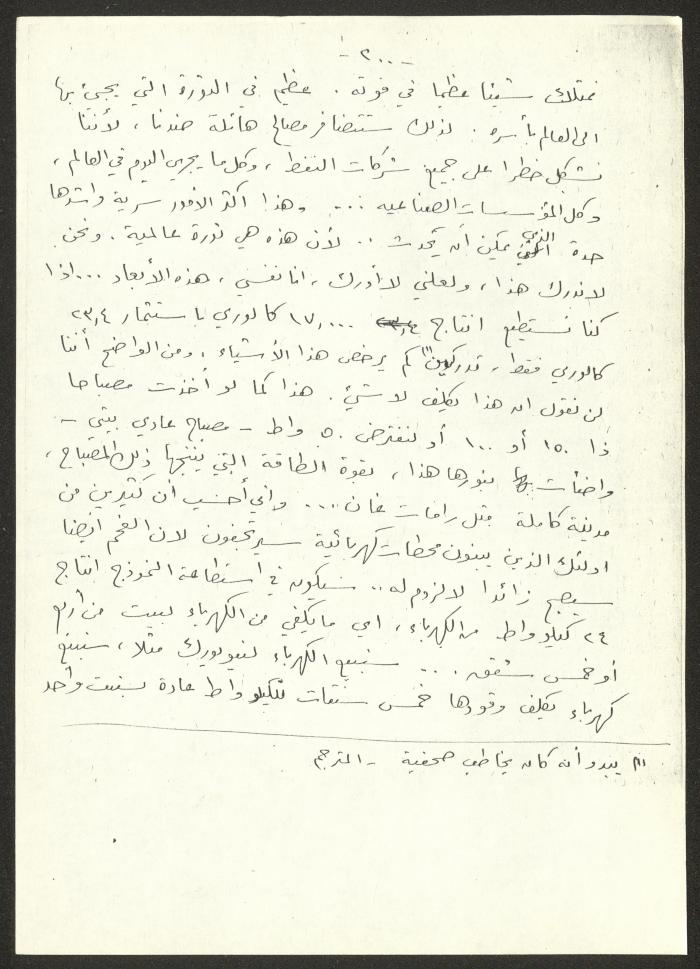 - ٢٠٠ -
نمتلك شيئا عظيما في قوته . عظيم في الثورة التي يجيئ بها
الى العالم بأسره . لذلك ستتضافر مصالح هائلة ضدنا ، لأننا
نشكل خطرا على جميع شركات النفط ، وكل ما يجري اليوم في العالم ،
وكل المؤسسات الصناعيه ... وهذا اكثر الامور سرية واشدها
حدة الذي يمكن أن يحدث .. لأن هذه هي ثورة عالمية . ونحن
لا ندرك هذا ، ولعلني لا أدرك ، انا نفسي ، هذه الأبعاد ... اذا
كنا نستطيع انتاج ١٧,٠٠٠ كالوري باستثمار ٢٣,٤
كالوري فقط ، تدركين(١) كم يرخص هذا الأشياء ، ومن الواضح أننا
لن نقول ان هذا يكلف لا شيئ . هذا كما لو أخذت مصباحا
ذا ١٥٠ أو ١٠٠ أو لنفترض ٥٠ واط - مصباح عادي بيتي -
واضأت بنورها هذا ، بقوة الطاقة التي ينتجها ذلك المصباح ،
مدينة كاملة مثل رامات غان .... واني أحسب أن كثيرين من
اولئك الذين يبنون محطات كهربائية سيرتجفون لان الفحم ايضا
سيصبح زائدا لا لزوم له .. سيكون في استطاعة النموذج انتاج
٢٤ كيلو واط من الكهرباء ، اي ما يكفي من الكهرباء لبيت من أربع
أو خمس شقق ... سنبيع الكهرباء لنيويورك مثلا ، سنبيع
كهرباء يكلف وقودها خمس سنتات للكيلو واط عادة بسنت واحد
(١) يبدو أنه كان يخاطب صحفية - المترجم